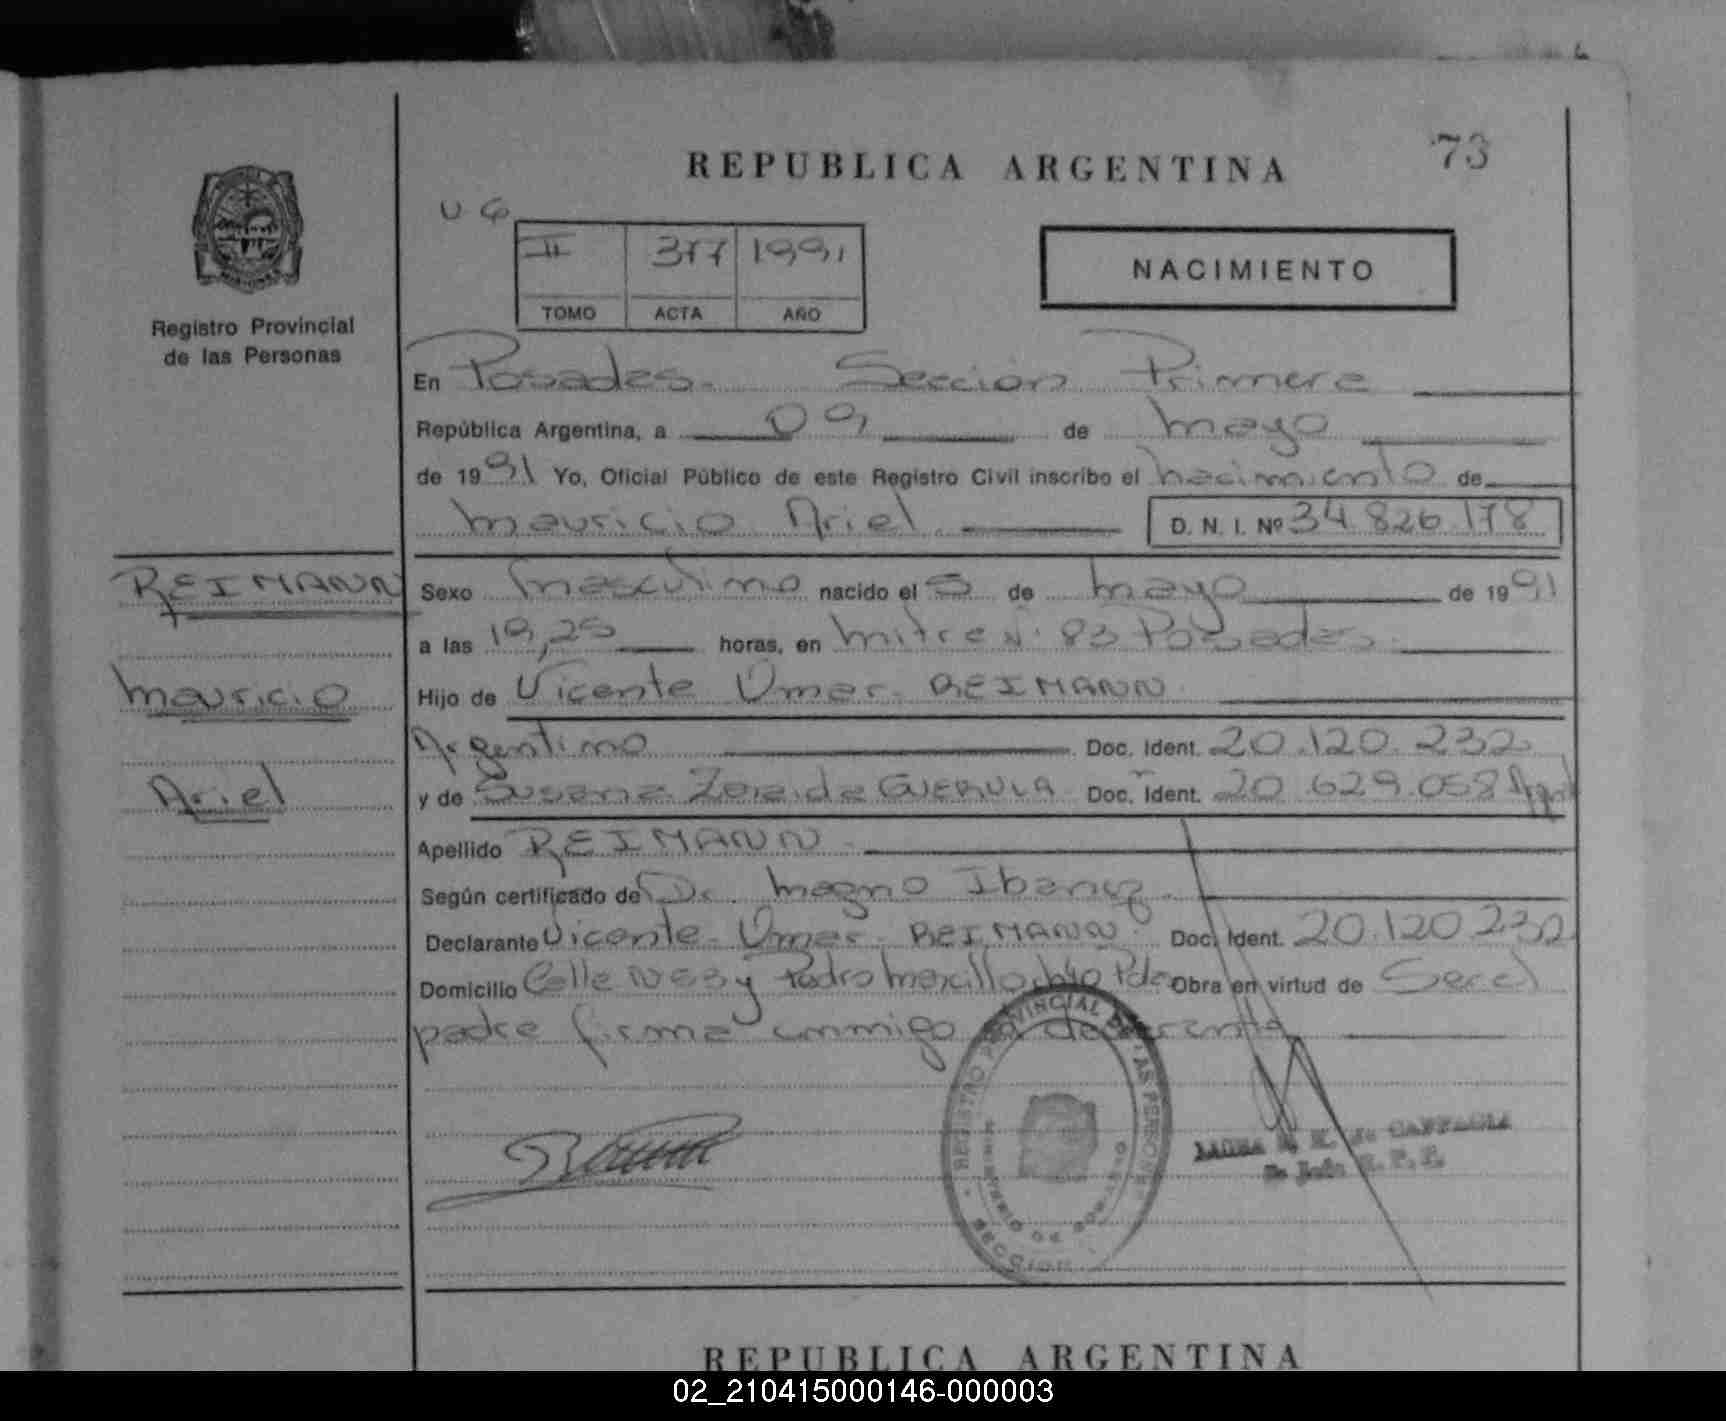 73
REPUBLICA ARGENTINA
II 377 1991
TOMO ACTA AÑO
NACIMIENTO
Registro Provincial
de las Personas
En Posadas. Seccion Primera
República Argentina, a 09 de mayo
de 1991 Yo, Oficial Público de este Registro Civil inscribo el nacimiento de
Mauricio Ariel D. N. I. Nº 34.826.178
REIMANN
Mauricio
Ariel
Sexo masculino nacido el 5 de mayo de 1991
a las 19,25 horas, en Mitre N. 83 Posadas.
Hijo de Vicente Omar REIMANN
Argentino Doc. Ident. 20.120.232
y de Susana Zoraida Doc. Ident. 20.629.058
Apellido REIMANN
Según certificado de Dr. Magno Ibanez
Declarante Vicente Omar REIMANN Doc. Ident. 20.120.232
Domicilio Calle Nº 63 y Pedro Obra en virtud de ser el
padre firma conmigo
REGISTRO PROVINCIAL DE LAS PERSONAS
SECCION
MINISTERIO DE GOBIERNO
REPUBLICA ARGENTINA
02_210415000146-000003